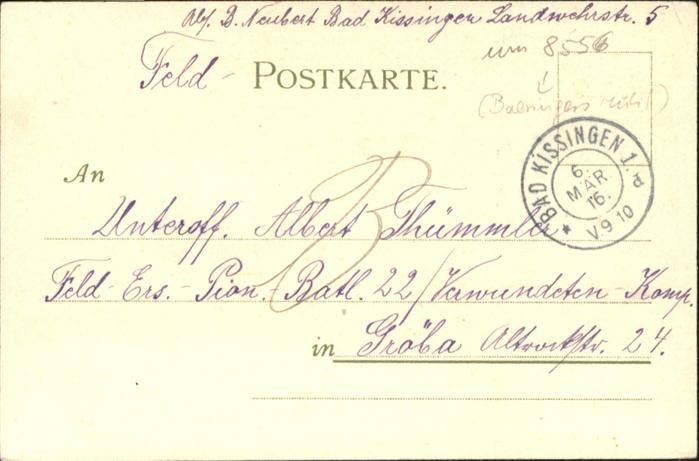 Abs. B. Neubert Bad Kissingen Landwehrstr. 5
um 8556
Feld - POSTKARTE.
BAD KISSINGEN 1. d
6. MÄR. 16.
* V. 9 10
An
B
Unteroff. Albert Thümmler
Feld - Ers. - Pion. - Batl. 22 / Verwundeten - Komp.
in Gröba Altrockstr. 24.